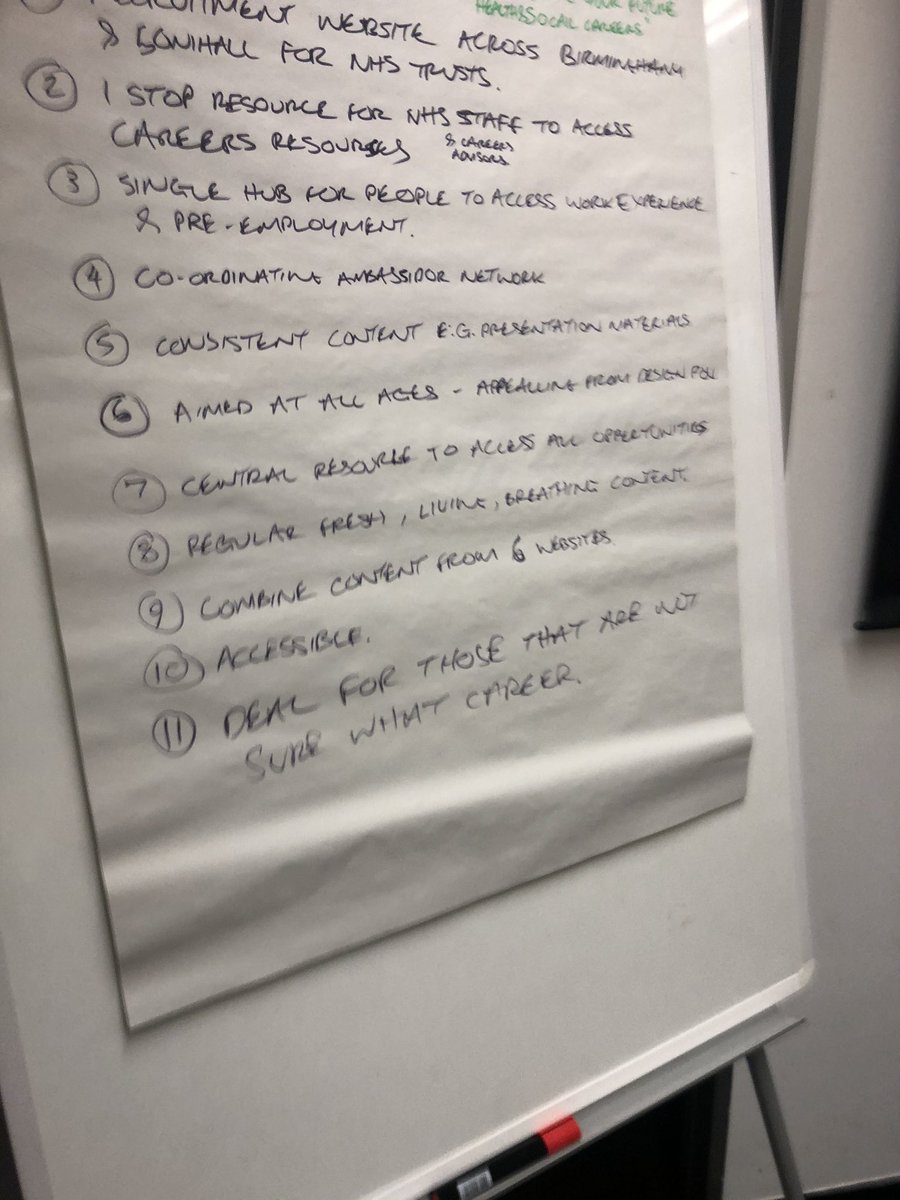 YOUR FUTURE
HEALTH&SOCAL CAREERS"
RECRUITMENT WEBSITE ACROSS BIRMINGHAM
& SONIHALL FOR NHS TRUSTS.
② 1 STOP RESOURCE FOR NHS STAFF TO ACCESS
CAREERS RESOURCES & CAREERS
ADVISORS
③ SINGLE HUB FOR PEOPLE TO ACCESS WORK EXPERIENCE
& PRE-EMPLOYMENT.
④ CO-ORDINATING AMBASSIDOR NETWORK
⑤ CONSISTENT CONTENT E.G. PRESENTATION MATERIALS
⑥ AIMED AT ALL AGES - APPEALLING FROM DESIGN POV
⑦ CENTRAL RESOURCE TO ACCESS ALL OPPERTUNITIES
⑧ REGULAR FRESH, LIVING, BREATHING CONTENT.
⑨ COMBINE CONTENT FROM 6 WEBSITES.
⑩ ACCESSIBLE.
⑪ DEAL FOR THOSE THAT ARE NOT
SURE WHAT CAREER.